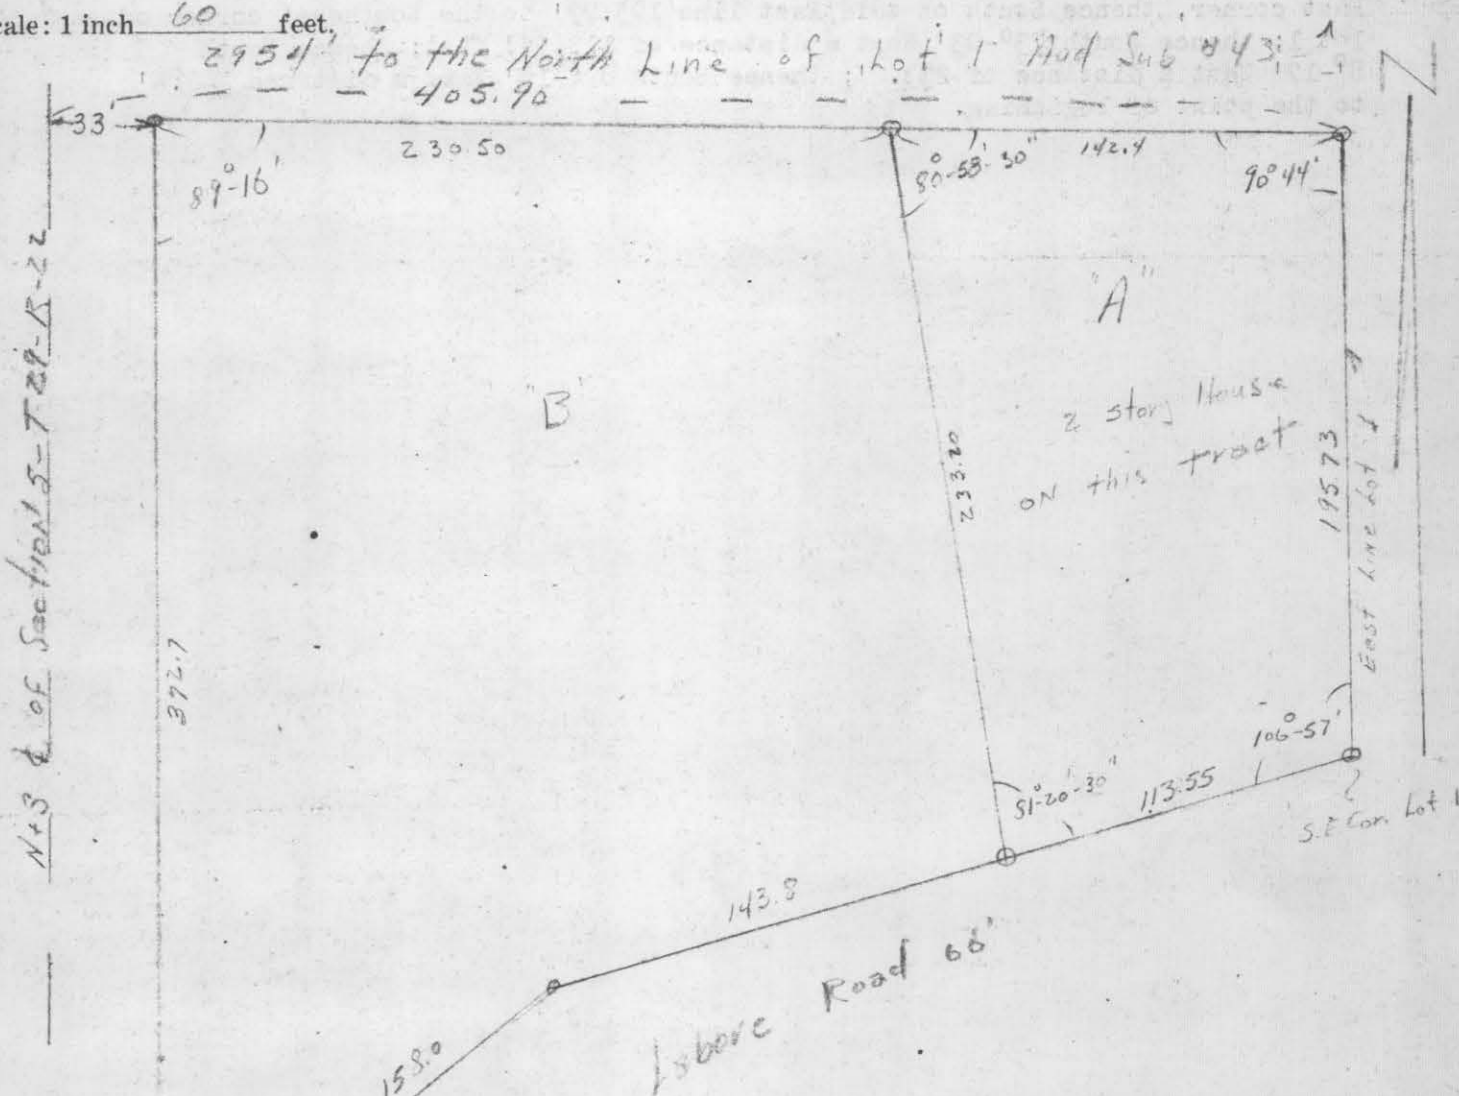 ale: 1 inch 60 feet.
295.4' to the North Line of Lot 1 Aud Sub #43
405.90
33'
230.50
142.4
89°-16'
80°-58'-30"
90°44'
N+S ¼ of Section 5-T29-R-22
"A"
"B"
2 story House
on this tract
233.20
195.73
East Line Lot 1
392.7
106°-57'
81°-20'-30"
113.55
S.E Cor. Lot 1
143.8
Labore Road 66'
158.0